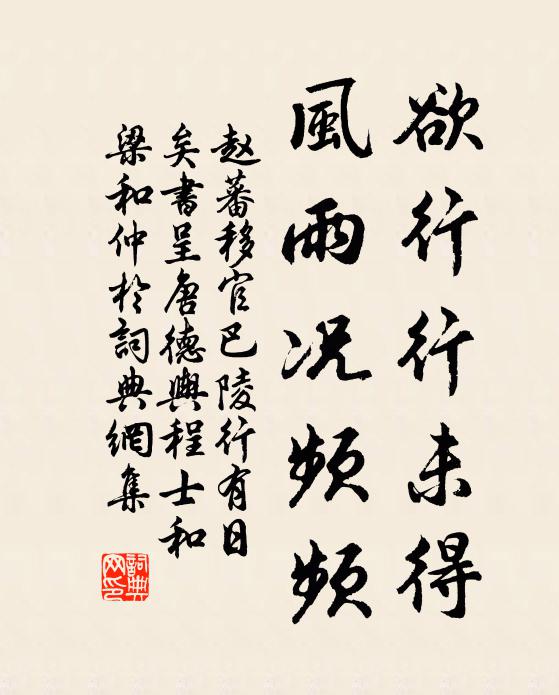 欲行行未得
風雨况頻頻
赵蕃移官巴陵行有日
矣書呈唐德輿程士和
梁和仲於詞典網集
詞典
网印